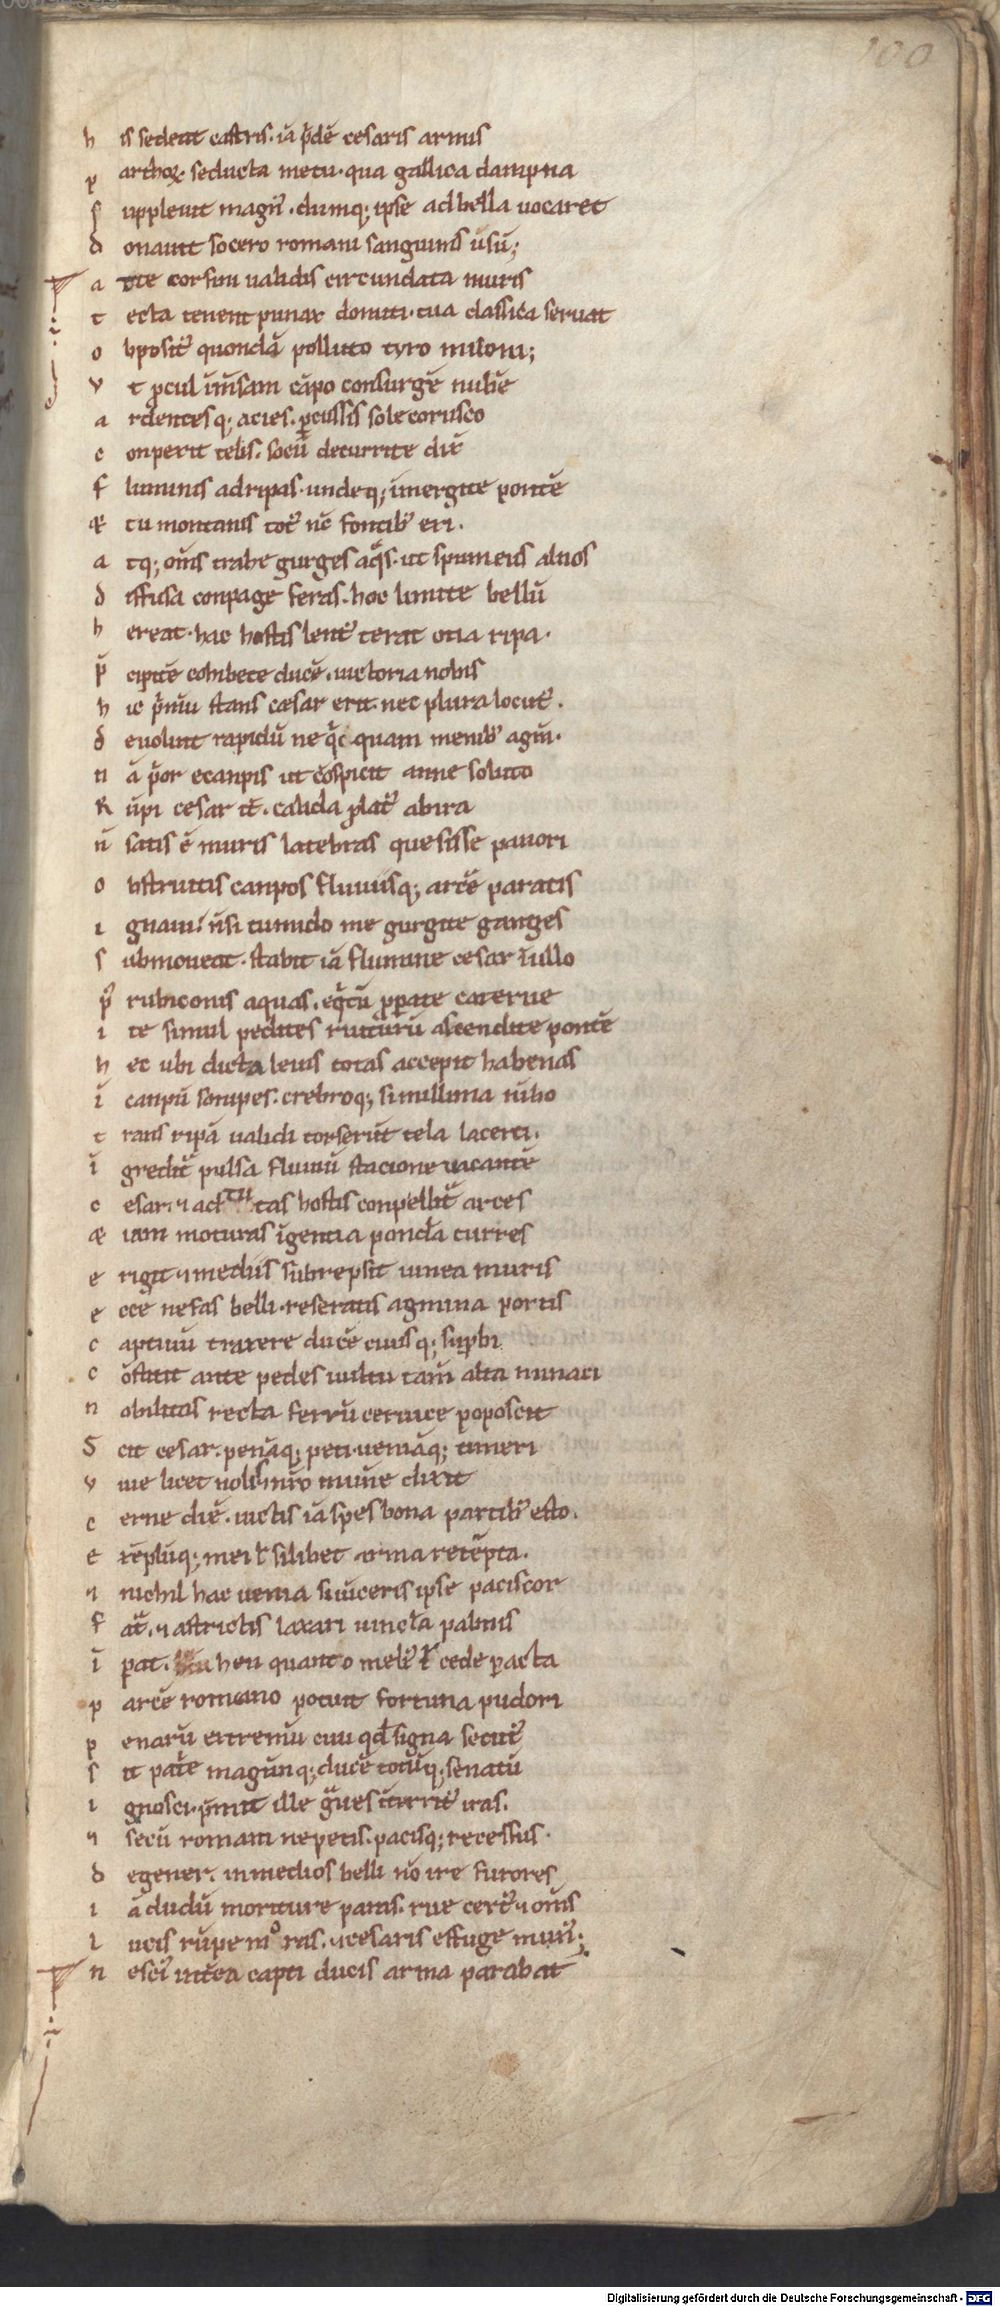 100
h is sedeat castris. iā p̄dē cesaris armis
p arthoꝝ. seducta metu. qua gallica dampna
s uppleuit magn᷒. dumq; ipse ad bella uocaret
d onauit socero romani sanguinis usū;
a t te corfini ualidis circundata muris
t ecta tenent punax domiti. tua classica seruat
o bposit᷒ quondā polluto tyro miloni;
v t pcul īm̄sam cāpo consurgē nubē
a rdentesq; acies. pcussis sole corusco
c onperit telis. socii decurrite dix̄
f luminis ad ripas. undeq; inmergite pontē
& tu montanis tot᷒ nc̄ fontib᷒ exi.
a tq; om̄s trahe gurges aq̄s. ut spumeus alnos
d iffusa conpage feras. hoc limite bellū
h ereat. hac hostis lent᷒ terat otia ripa.
p̄ cipitē cohibete ducē. uictoria nobis
h ic p̄mū stans cæsar erit. nec plura locut᷒.
d euoluit rapidū ne q̄cquam menib᷒ agm̄.
n ā p̄or e canpis ut cōspicit amne soluto
R ūpi cesar it̄. calida plat᷒ ab ira
n̄ satis ē muris latebras quesisse pauori
o bstruitis canpos fluuiisq; arcē paratis
i gnaui. n̄ si tumido me gurgite ganges
s ubmoueat. stabit iā flumine cesar ī ullo
p᷒ rubiconis aquas. eq̄tū pperate caterue
i te simul pedites ruiturū ascendite pontē
h ec ubi dicta leuis totas accepit habenas
ī canpū sonipes. crebroq; simillima nībo
t rans ripā ualidi torserūt tela lacerti.
ī gredit᷒ pulsa fluuiū stacione uacantē
c esar. ⁊ ad tutas hostis conpellit᷒ arces
& iam moturas īgentia pond̄a turres
e rigit ⁊ mediis subrepsit uinea muris
e cce nefas belli. reseratis agmina portis
c aptiuū traxere ducē ciuisq; supbi
c ōstitit ante pedes uultu tam̄ alta minaci
n obilitas recta ferrū ceruice poposcit
S cit cesar. penāq; peti. ueniāq; timeri
v iue licet nolis ⁊ nr̄o mun̄e dixit
c erne diē. uictis iā spes bona partib᷒ esto.
e xēplūq; mei ł si libet arma retēpta.
⁊ nichil hac uenia si uiceris ipse paciscor
f at᷒. ⁊ astrictis laxari uincl̄a palmis
ī pat. heu quanto meli᷒ ł cede pacta
p arcē romano potuit fortuna pudori
p enarū extremū ciui qd̄ signa secut᷒
s it patr̄e magnūq; ducē totūq; senatū
i gnosci. p̄mit ille g̃ues īterrit᷒ iras.
⁊ secū romam ne petis. pacisq; recessus.
d egener. in medios belli nō ire furores
i ā dudū moriture paras. rue cert᷒ ⁊ om̄s
l ucis rūpe moras. ⁊ cesaris effuge mun᷒;
n esci᷒ int̄ea capti ducis arma parabat
Digitalisierung gefördert durch die Deutsche Forschungsgemeinschaft - DFG